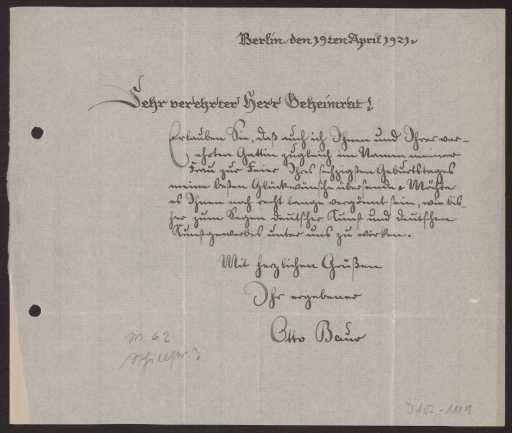 Berlin den 19ten April 1921.
Sehr verehrter Herr Geheimrat!
Erlauben Sie, daß auch ich Ihnen und Ihrer ver-
ehrten Gattin zugleich im Namen meiner
Frau zur Feier Ihres sechzigsten Geburtstages
meine besten Glückwünsche übersende. Möchte
es Ihnen noch recht lange vergönnt sein, wie bis-
her zum Segen deutscher Kunst und deutschen
Kunstgewerbes unter uns zu wirken.
Mit herzlichen Grüßen
Ihr ergebener
Otto Baur
W. 62
Schillstr. 3